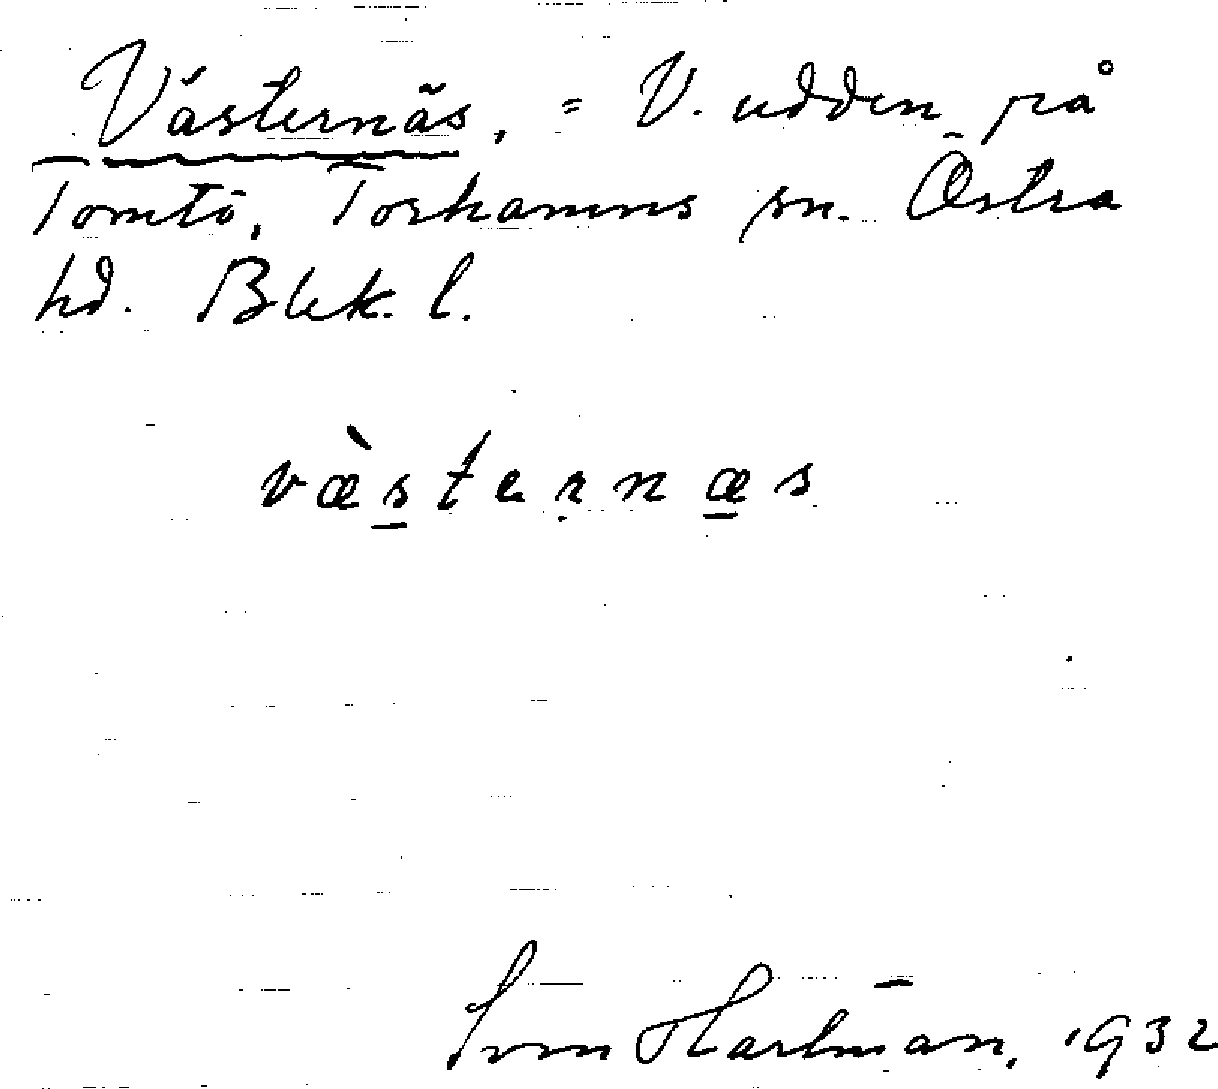 Västernäs, = V. udden på
Tomtö, Torhamns sn. Östra
hd. Blek. l.
væ̀s̲teṛnæ̲s
Sven Hartman, 1932